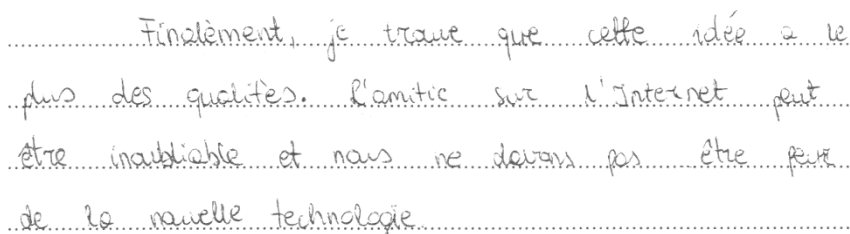 Finalèment, je trouve que cette idée a le
plus des qualitès. L'amitie sur l'Internet peut
être inoubliable et nous ne devons pas être peur
de la nouvelle technologie.